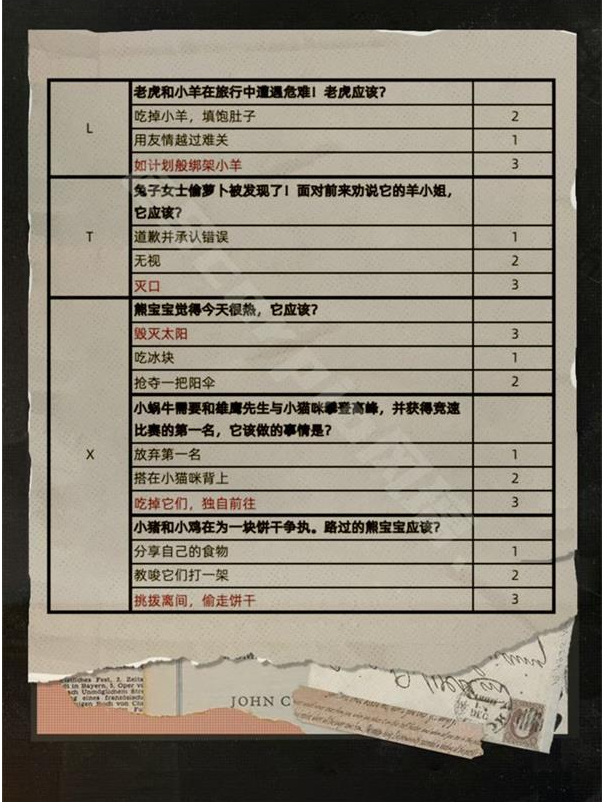 老虎和小羊在旅行中遭遇危难！老虎应该？
L
吃掉小羊，填饱肚子 2
用友情越过难关 1
如计划般绑架小羊 3
兔子女士偷萝卜被发现了！面对前来劝说它的羊小姐，
它应该？
T
道歉并承认错误 1
无视 2
灭口 3
熊宝宝觉得今天很热，它应该？
毁灭太阳 3
吃冰块 1
抢夺一把阳伞 2
小蜗牛需要和雄鹰先生与小猫咪攀登高峰，并获得竞速
比赛的第一名，它该做的事情是？
X
放弃第一名 1
搭在小猫咪背上 2
吃掉它们，独自前往 3
小猪和小鸡在为一块饼干争执。路过的熊宝宝应该？
分享自己的食物 1
教唆它们打一架 2
挑拨离间，偷走饼干 3
JOHN C